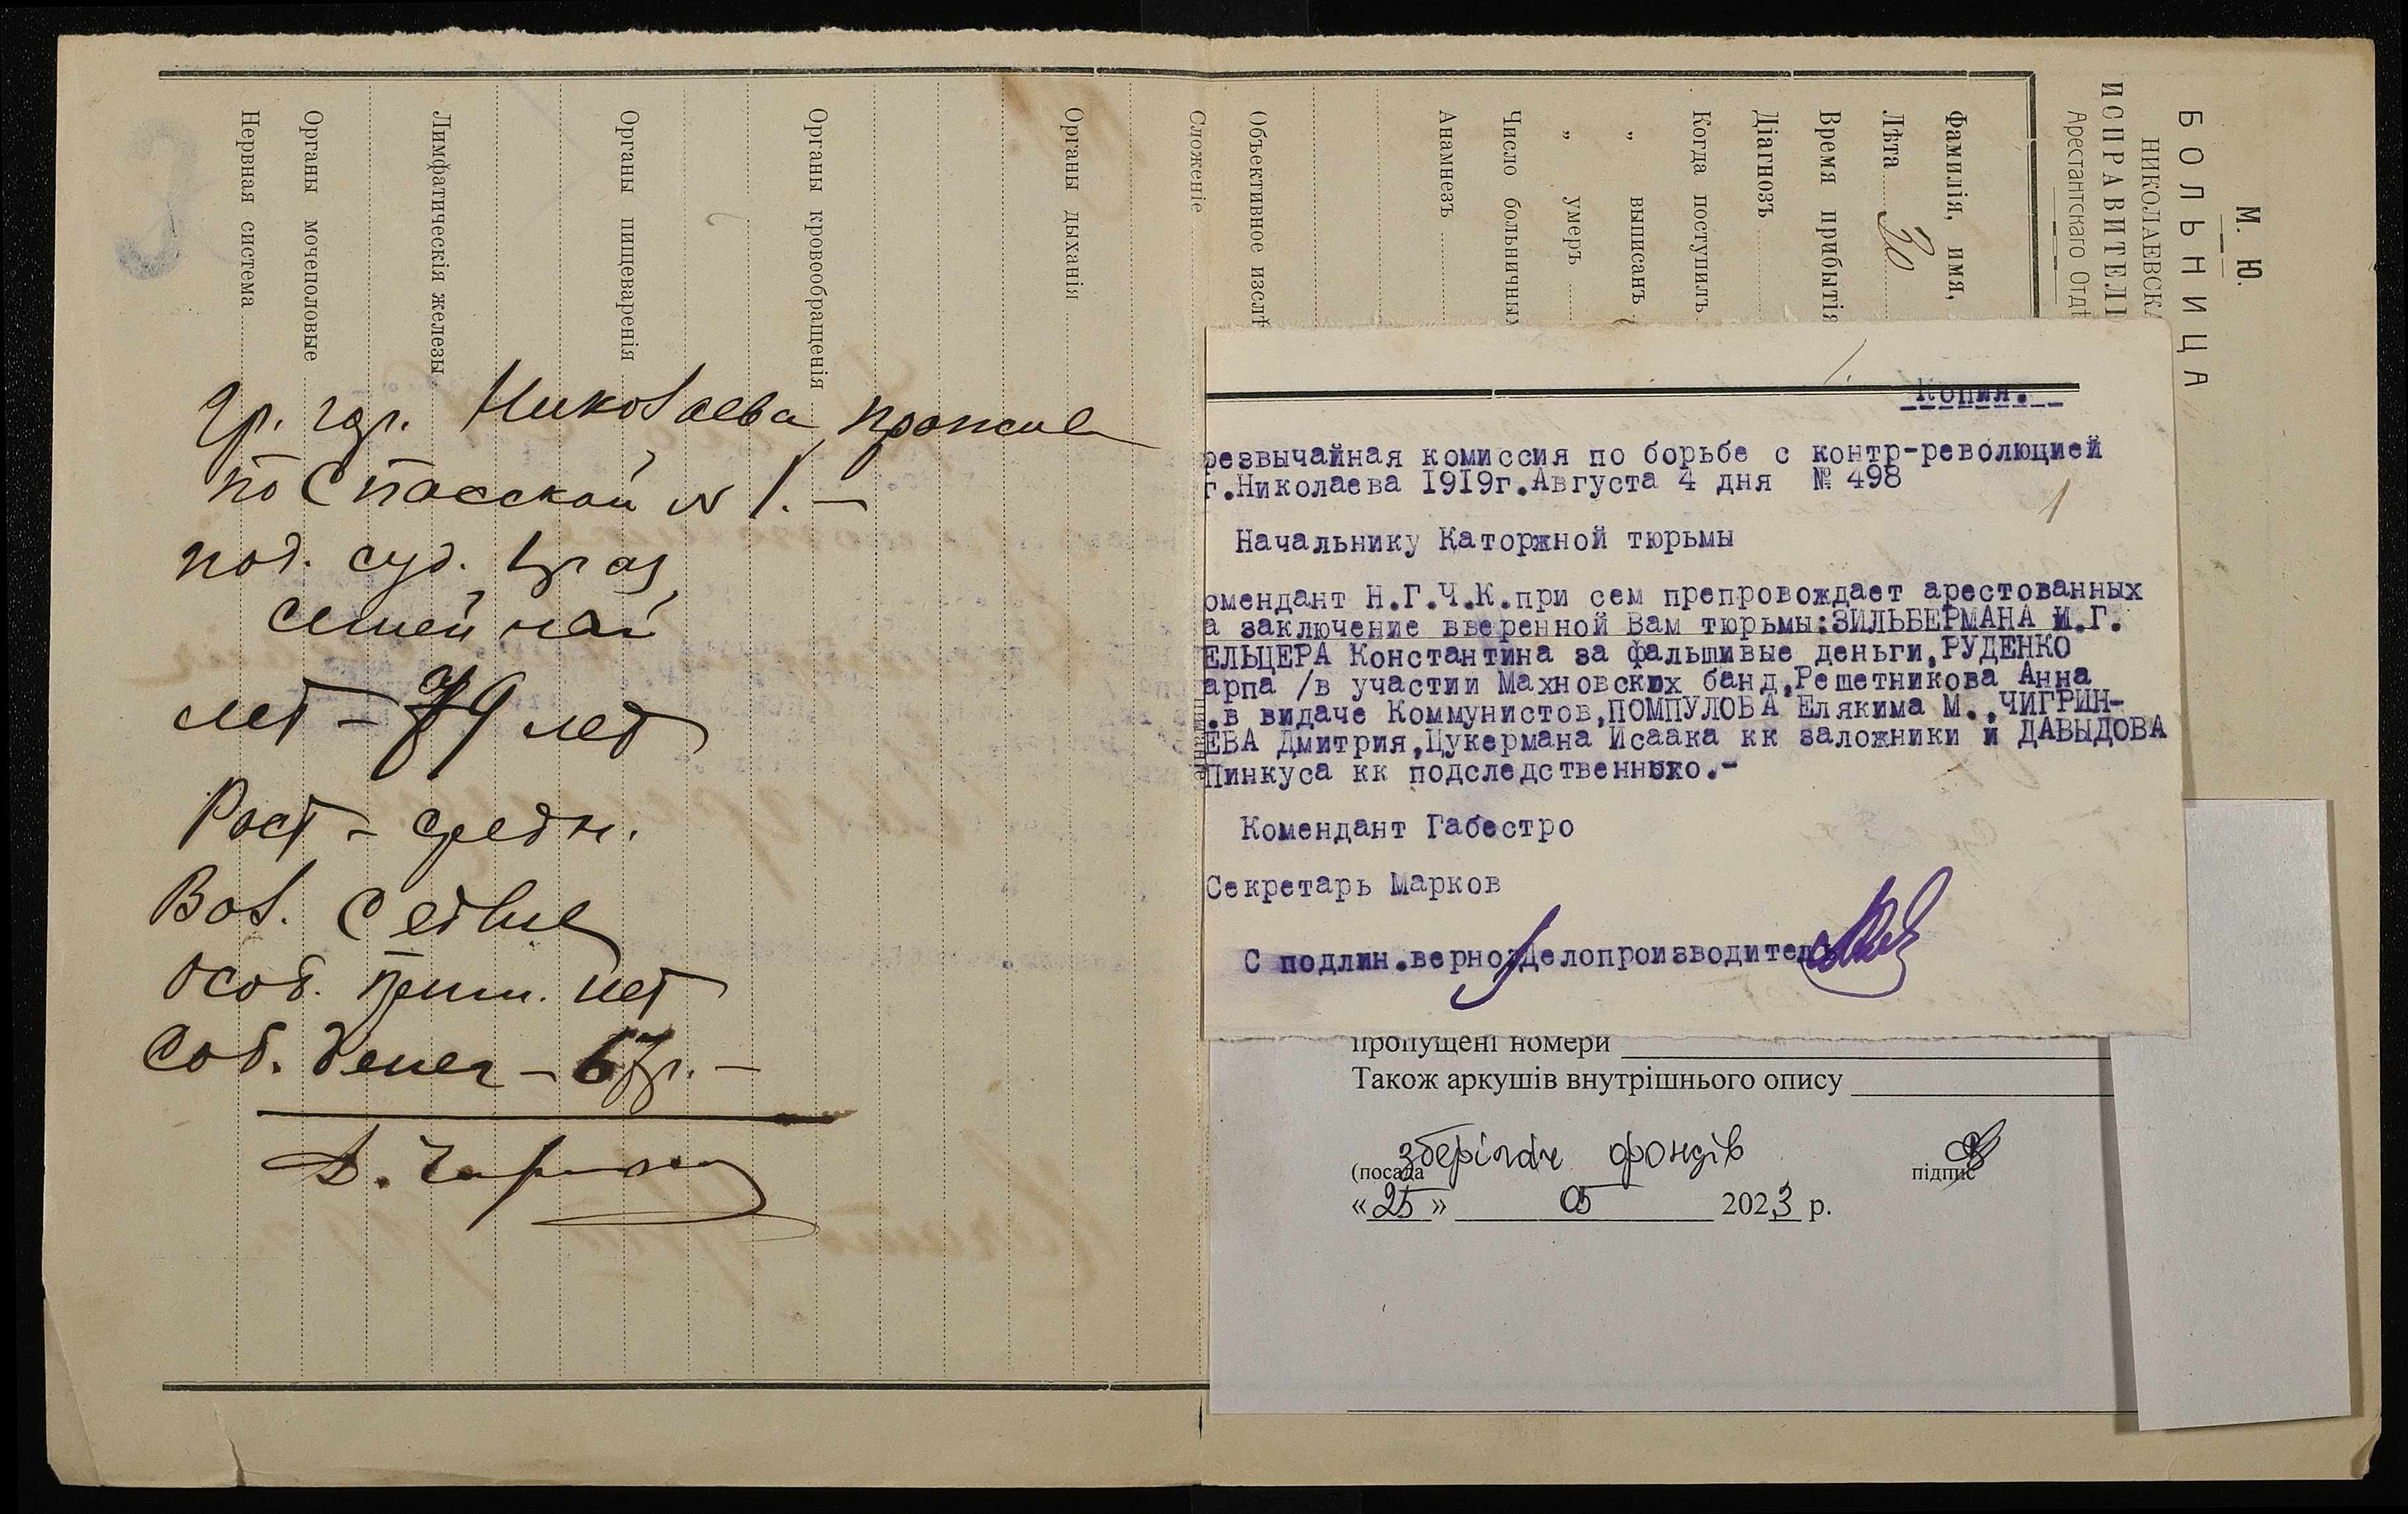 М. Ю.
БОЛЬНИЦА
НИКОЛАЕВСКА
ИСПРАВИТЕЛЬ
Арестантскаго Отдѣ
Фамилія, имя,
Лѣта 30
Время прибытія
Діагнозъ
Когда поступилъ
„ выписанъ
„ умеръ
Число больничныхъ
Анамнезъ
Объективное изслѣ
Сложеніе
Органы дыханія
Органы кровообращенія
Органы пищеваренія
Лимфатическія железы
Органы мочеполовые
Нервная система
Гр. гор. Николаева прожив
по Спасской № 1. –
под. суд. 1 раз
семейный
лет – 79 лет
Рост – средн.
Вол. седые
Особ. прим. нет
Соб. денег – 67р. –
Д. Чигрин
Копия.
резвычайная комиссия по борьбе с контр-революцией
г.Николаева 1919г.Августа 4 дня № 498
1
Начальнику Каторжной тюрьмы
омендант Н.Г.Ч.К.при сем препровождает арестованных
а заключение вверенной Вам тюрьмы:ЗИЛЬБЕРМАНА И.Г.
ЕЛЬЦЕРА Константина за фальшивые деньги,РУДЕНКО
арпа /в участии Махновских банд,Решетникова Анна
.в видаче Коммунистов,ПОМПУЛОВА Елякима М.,ЧИГРИН-
ЕВА Дмитрия,Цукермана Исаака кк заложники и ДАВЫДОВА
Пинкуса кк подследственныхо.-
Комендант Габестро
Секретарь Марков
С подлин.верно:Делопроизводитель
пропущені номери
Також аркушів внутрішнього опису
зберігач фондів
(посада
підпис
«25» 05 2023 р.